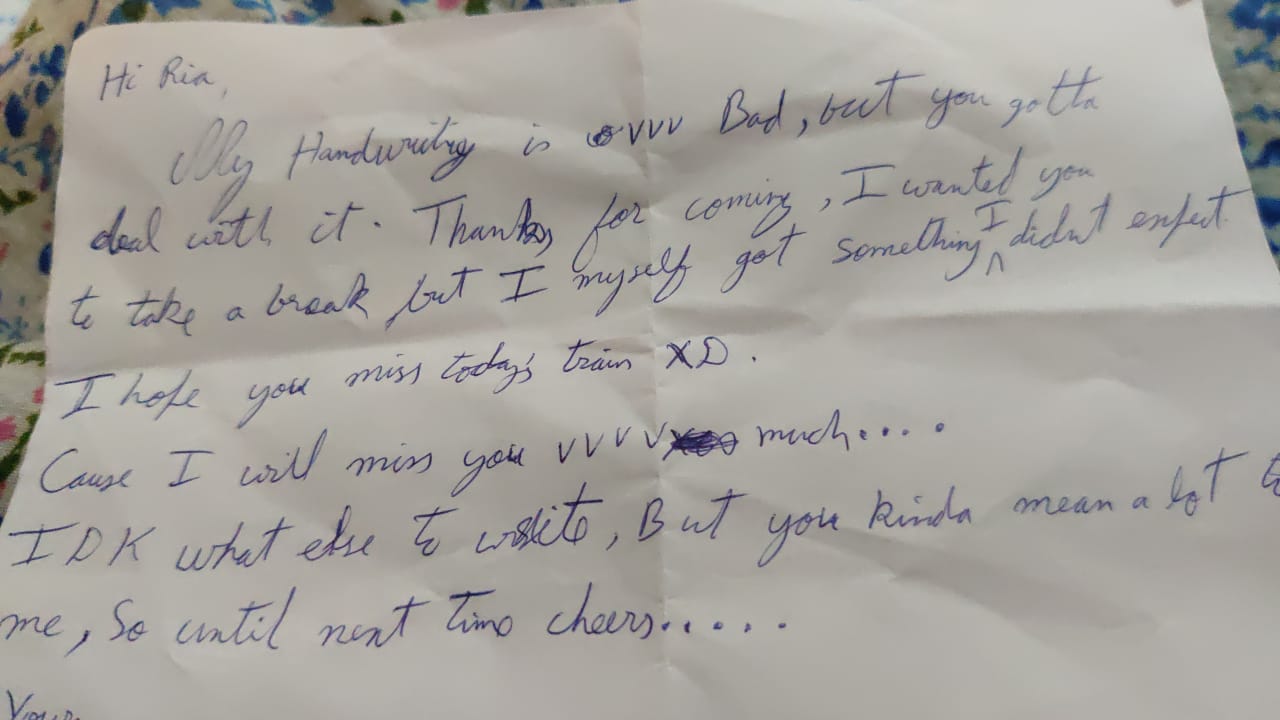 Hi Ria,
My Handwriting is vvvv Bad, but you gotta
deal with it. Thanks for coming, I wanted you
to take a break but I myself got something I didn't expect.
I hope you miss today's train XD.
Cause I will miss you vvvv much....
IDK what else to write, But you kinda mean a lot to
me, So until next time cheers.....
Your